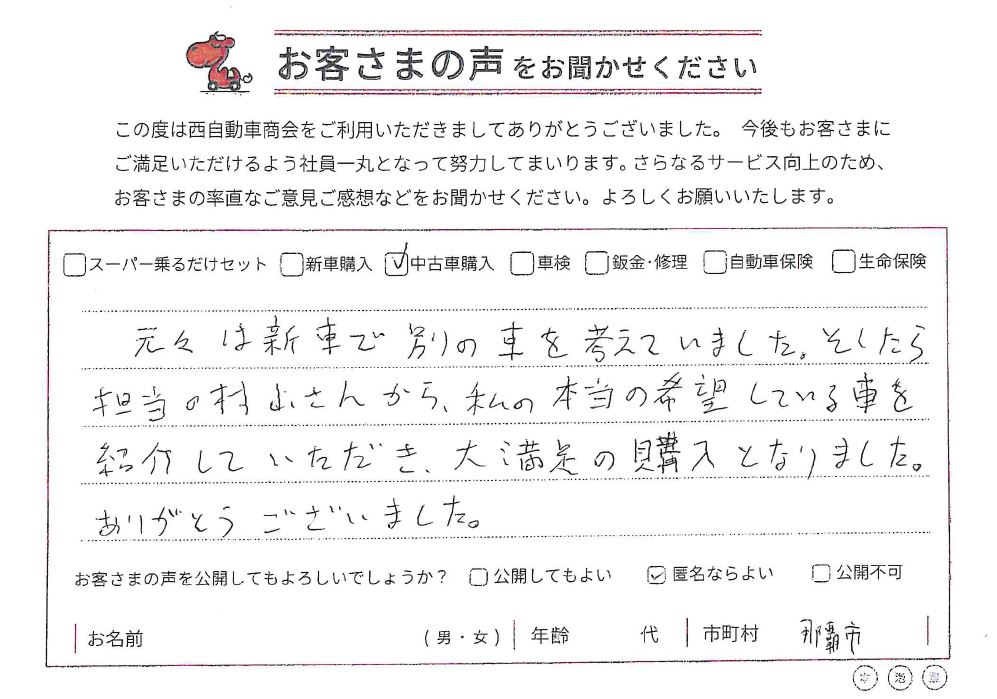 お客さまの声をお聞かせください
この度は西自動車商会をご利用いただきましてありがとうございました。 今後もお客さまに
ご満足いただけるよう社員一丸となって努力してまいります。さらなるサービス向上のため、
お客さまの率直なご意見ご感想などをお聞かせください。よろしくお願いいたします。
スーパー乗るだけセット 新車購入 中古車購入 車検 鈑金・修理 自動車保険 生命保険
元々は新車で別の車を考えていました。そしたら
担当の村山さんから、私の本当の希望している車を
紹介していただき、大満足の購入となりました。
ありがとうございました。
お客さまの声を公開してもよろしいでしょうか？ 公開してもよい 匿名ならよい 公開不可
お名前 (男・女) 年齢 代 市町村 那覇市